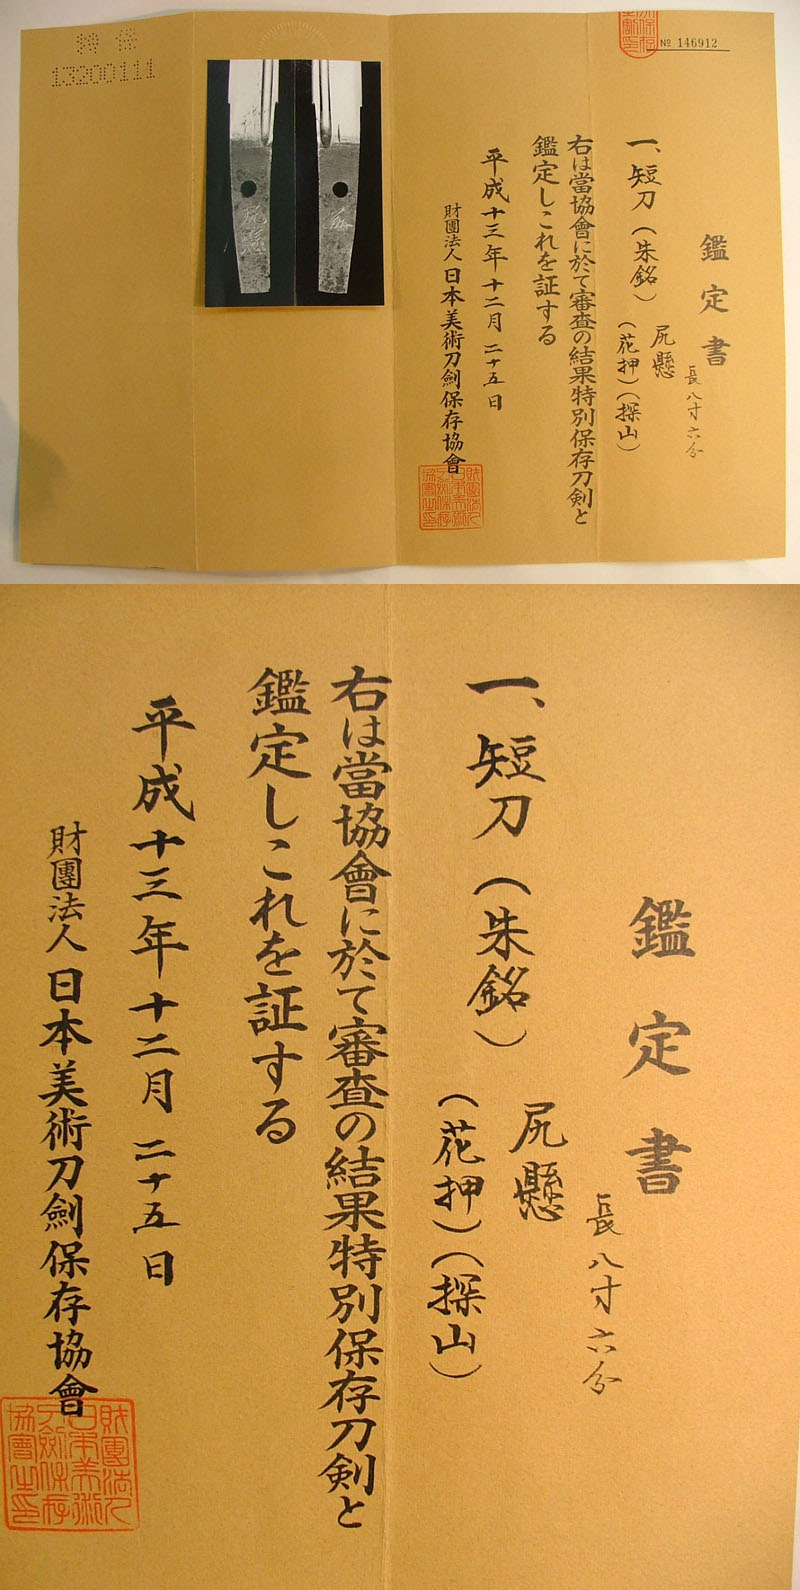 № 146912
鑑定書
長八寸六分
一、短刀（朱銘）尻懸
（花押）（探山）
右は當協會に於て審査の結果特別保存刀剣と
鑑定しこれを証する
平成十三年十二月二十五日
財團法人日本美術刀劍保存協會
特保
13200111
鑑定書
長八寸六分
一、短刀（朱銘）尻懸
（花押）（探山）
右は當協會に於て審査の結果特別保存刀剣と
鑑定しこれを証する
平成十三年十二月二十五日
財團法人日本美術刀劍保存協會
財團法人
日本美術
刀劍保存
協會之印